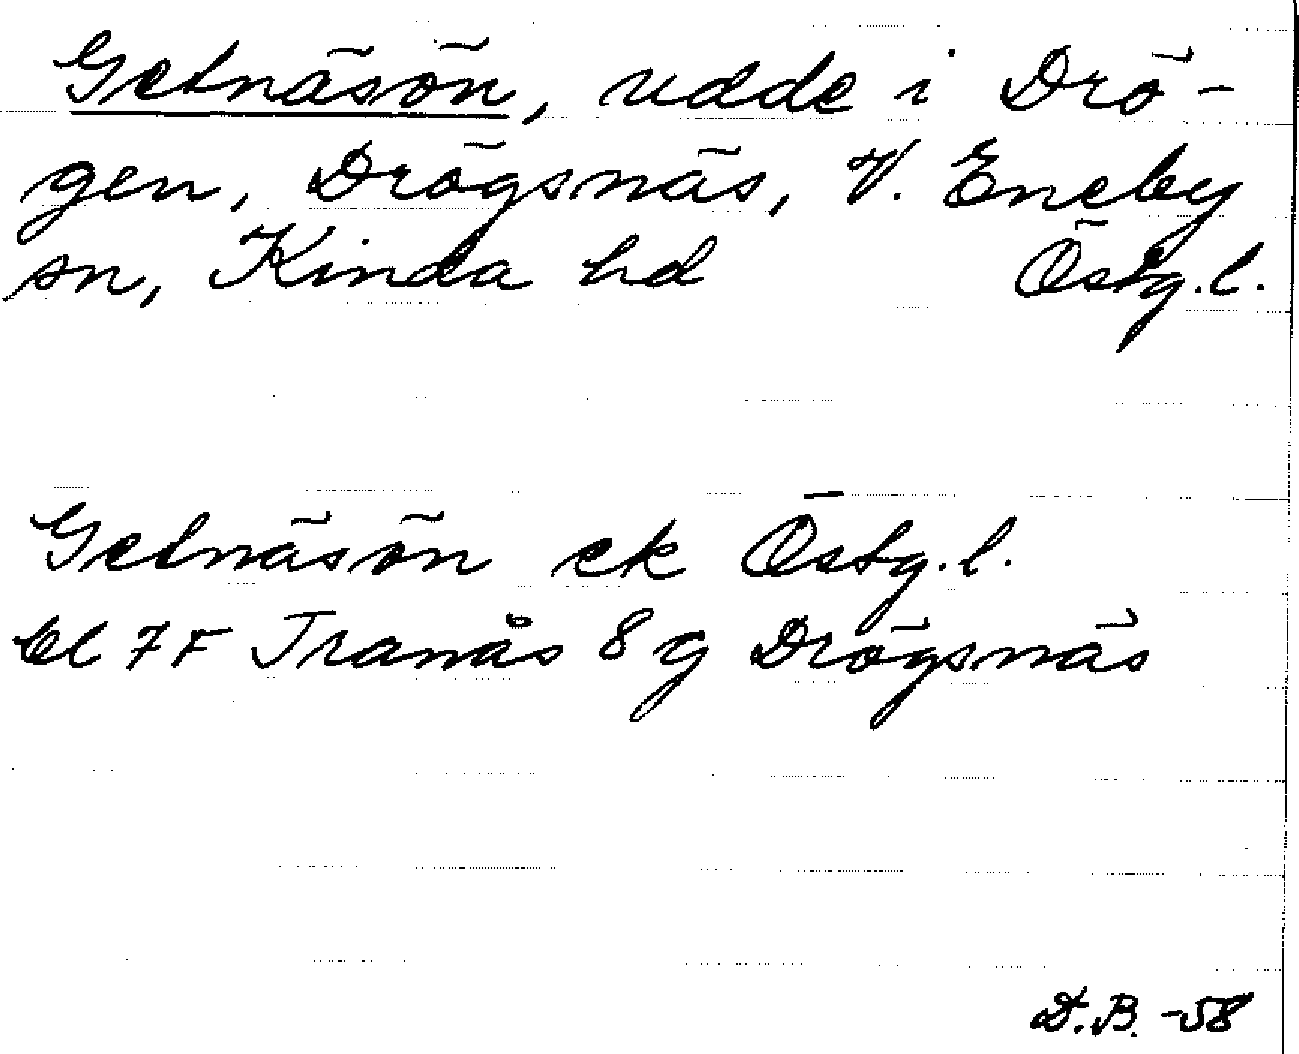 Getnäsön, udde i Drö-
gen, Drögsnäs, V. Eneby
sn, Kinda hd Östg.l.
Getnäsön ek Östg.l.
bl 7F Tranås 8 g Drögsnäs
D.B. -58